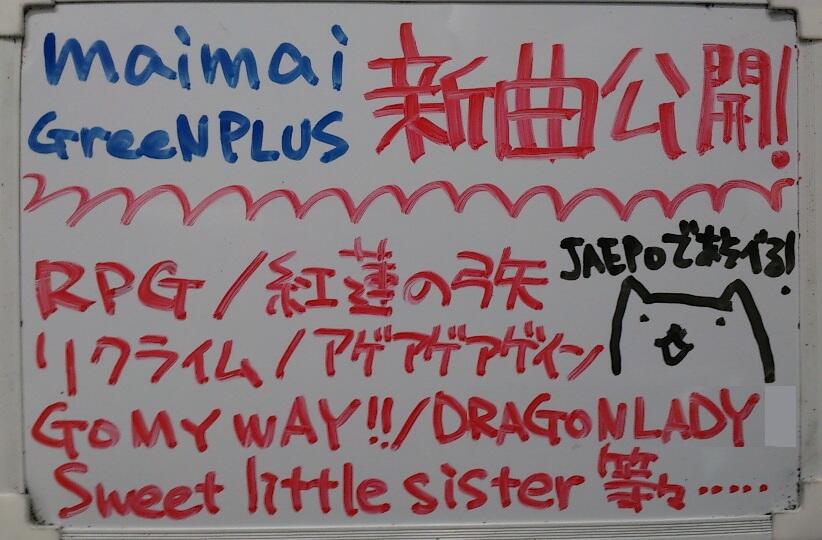 maimai
GreeN PLUS
新曲公開!
JAEPOでまってる!
RPG/紅蓮の弓矢
リクライム/アゲアゲアゲイン
GO MY WAY!!/DRAGONLADY
Sweet little sister 等々……